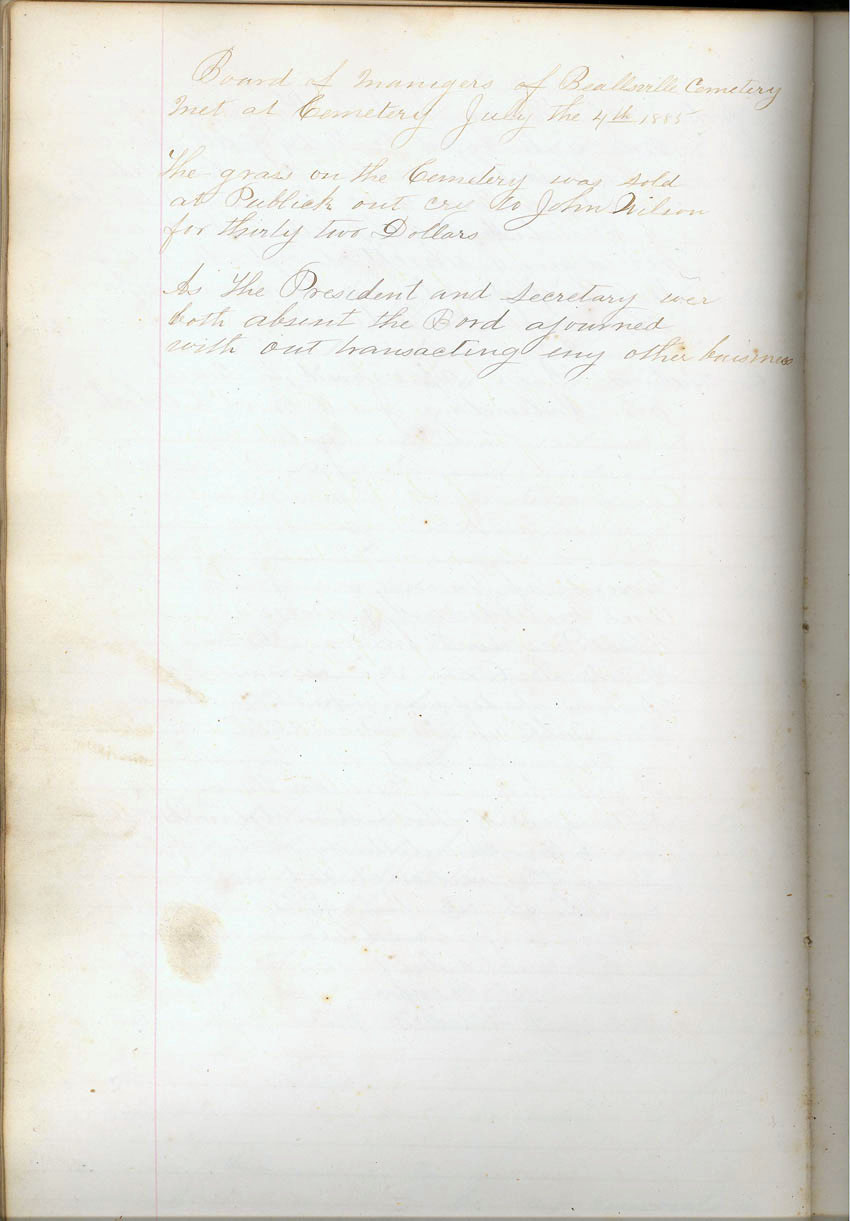 Board of Manigers of Beallsville Cemetery
Met at Cemetery July the 4th 1885
The grass on the Cemetery was sold
at Publick out cry to John Wilson
for thirty two Dollars
As The President and Secretary wer
both absent the Bord ajourned
with out transacting eny other buisness